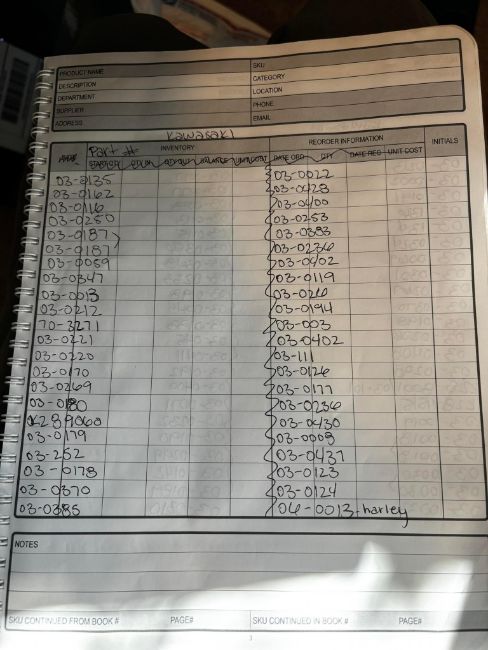 PRODUCT NAME
DESCRIPTION
DEPARTMENT
SUPPLIER
ADDRESS
SKU
CATEGORY
LOCATION
PHONE
EMAIL
Kawasaki
INVENTORY
REORDER INFORMATION
INITIALS
Part #
DATE ORD QTY DATE REC UNIT COST
03-0135 03-0022
03-0162 03-0428
03-0116 03-0400
03-0250 03-0253
03-0187 03-0383
03-0187 03-0236
03-0059 03-0402
03-0347 03-0119
03-0013
03-0212 03-0194
70-3271 03-003
03-0221 03-0402
03-0220 03-111
03-0170 03-0126
03-0269 03-0177
03-0180 03-0236
K289060 03-0430
03-0179 03-0008
03-252 03-0437
03-0178 03-0123
03-0370 03-0124
03-0385 06-0013-harley
NOTES
SKU CONTINUED FROM BOOK # PAGE# SKU CONTINUED IN BOOK # PAGE#
3